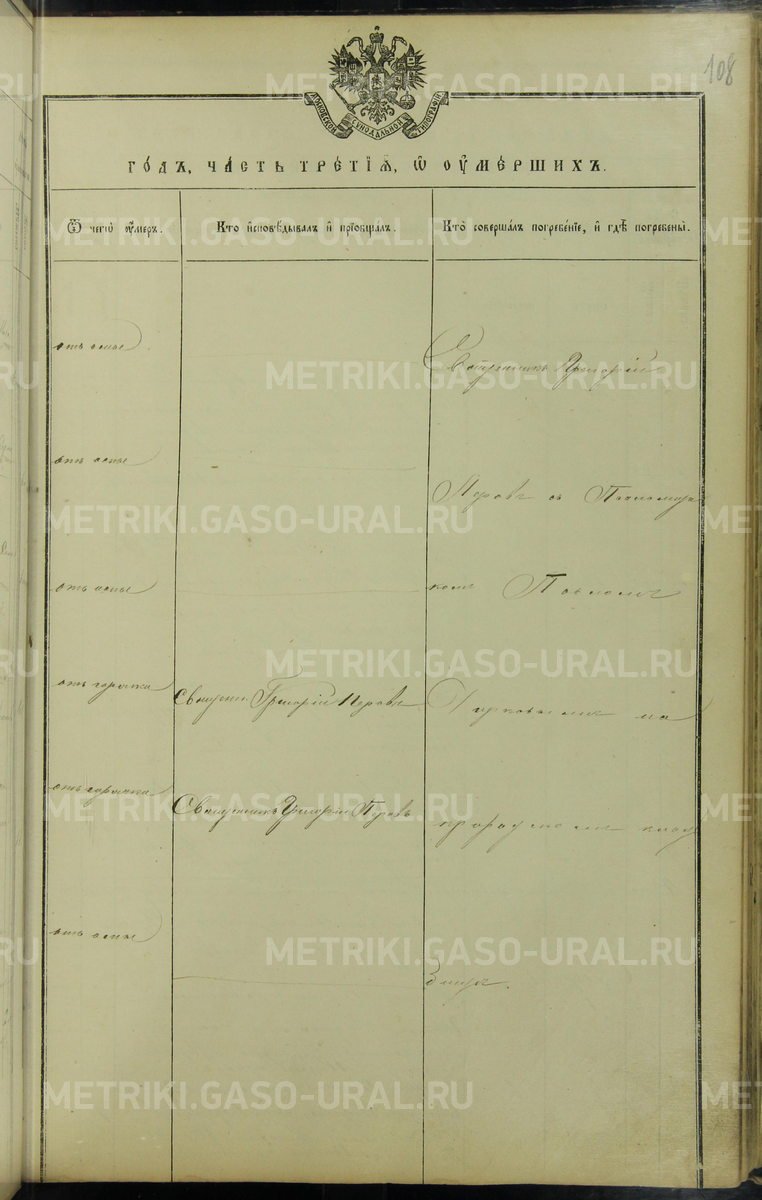 108
МОСКОВСКОЙ СѴНОДАЛЬНОЙ ТИПОГРАФІИ
ГО́ДЪ, ЧА́СТЬ ТРЕ́ТІѦ, Ѡ ОУ҆МЕ́РШИХЪ.
Ѿ чегѡ̀ оу҆́меръ.
Кто̀ и҆сповѣ́дывалъ и҆ прїѡбща́лъ.
Кто̀ соверша́лъ погребе́нїе, и҆ гдѣ̀ погребены̀.
отъ оспы
Священникъ Григорій
отъ оспы
Перовъ съ
отъ оспы
отъ горячки
Священ. Григорій Перовъ
на
отъ горячки
Священникъ Григорій Перовъ
отъ оспы
METRIKI.GASO-URAL.RU